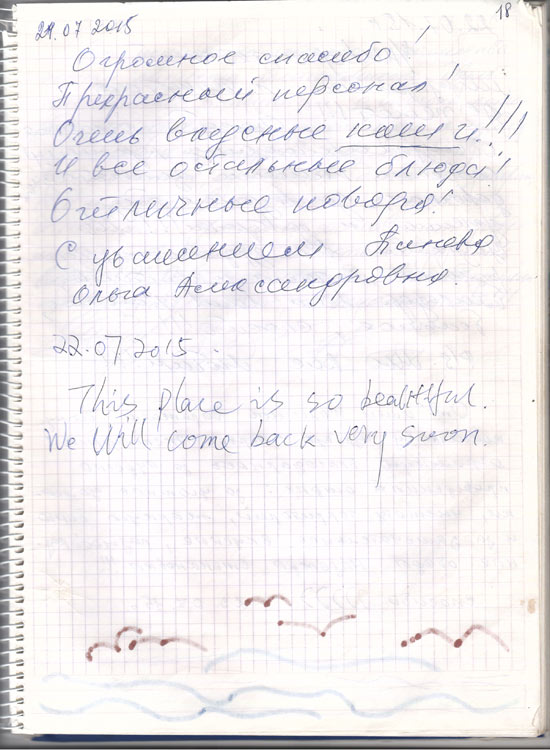 18
21.07 2015
Огромное спасибо!
Прекрасный персонал!
Очень вкусные каши!!!
И все остальные блюда!
Отличные повара!
С уважением
Ольга Александровна.
22.07.2015.
This place is so beautiful.
We Will come back very soon.